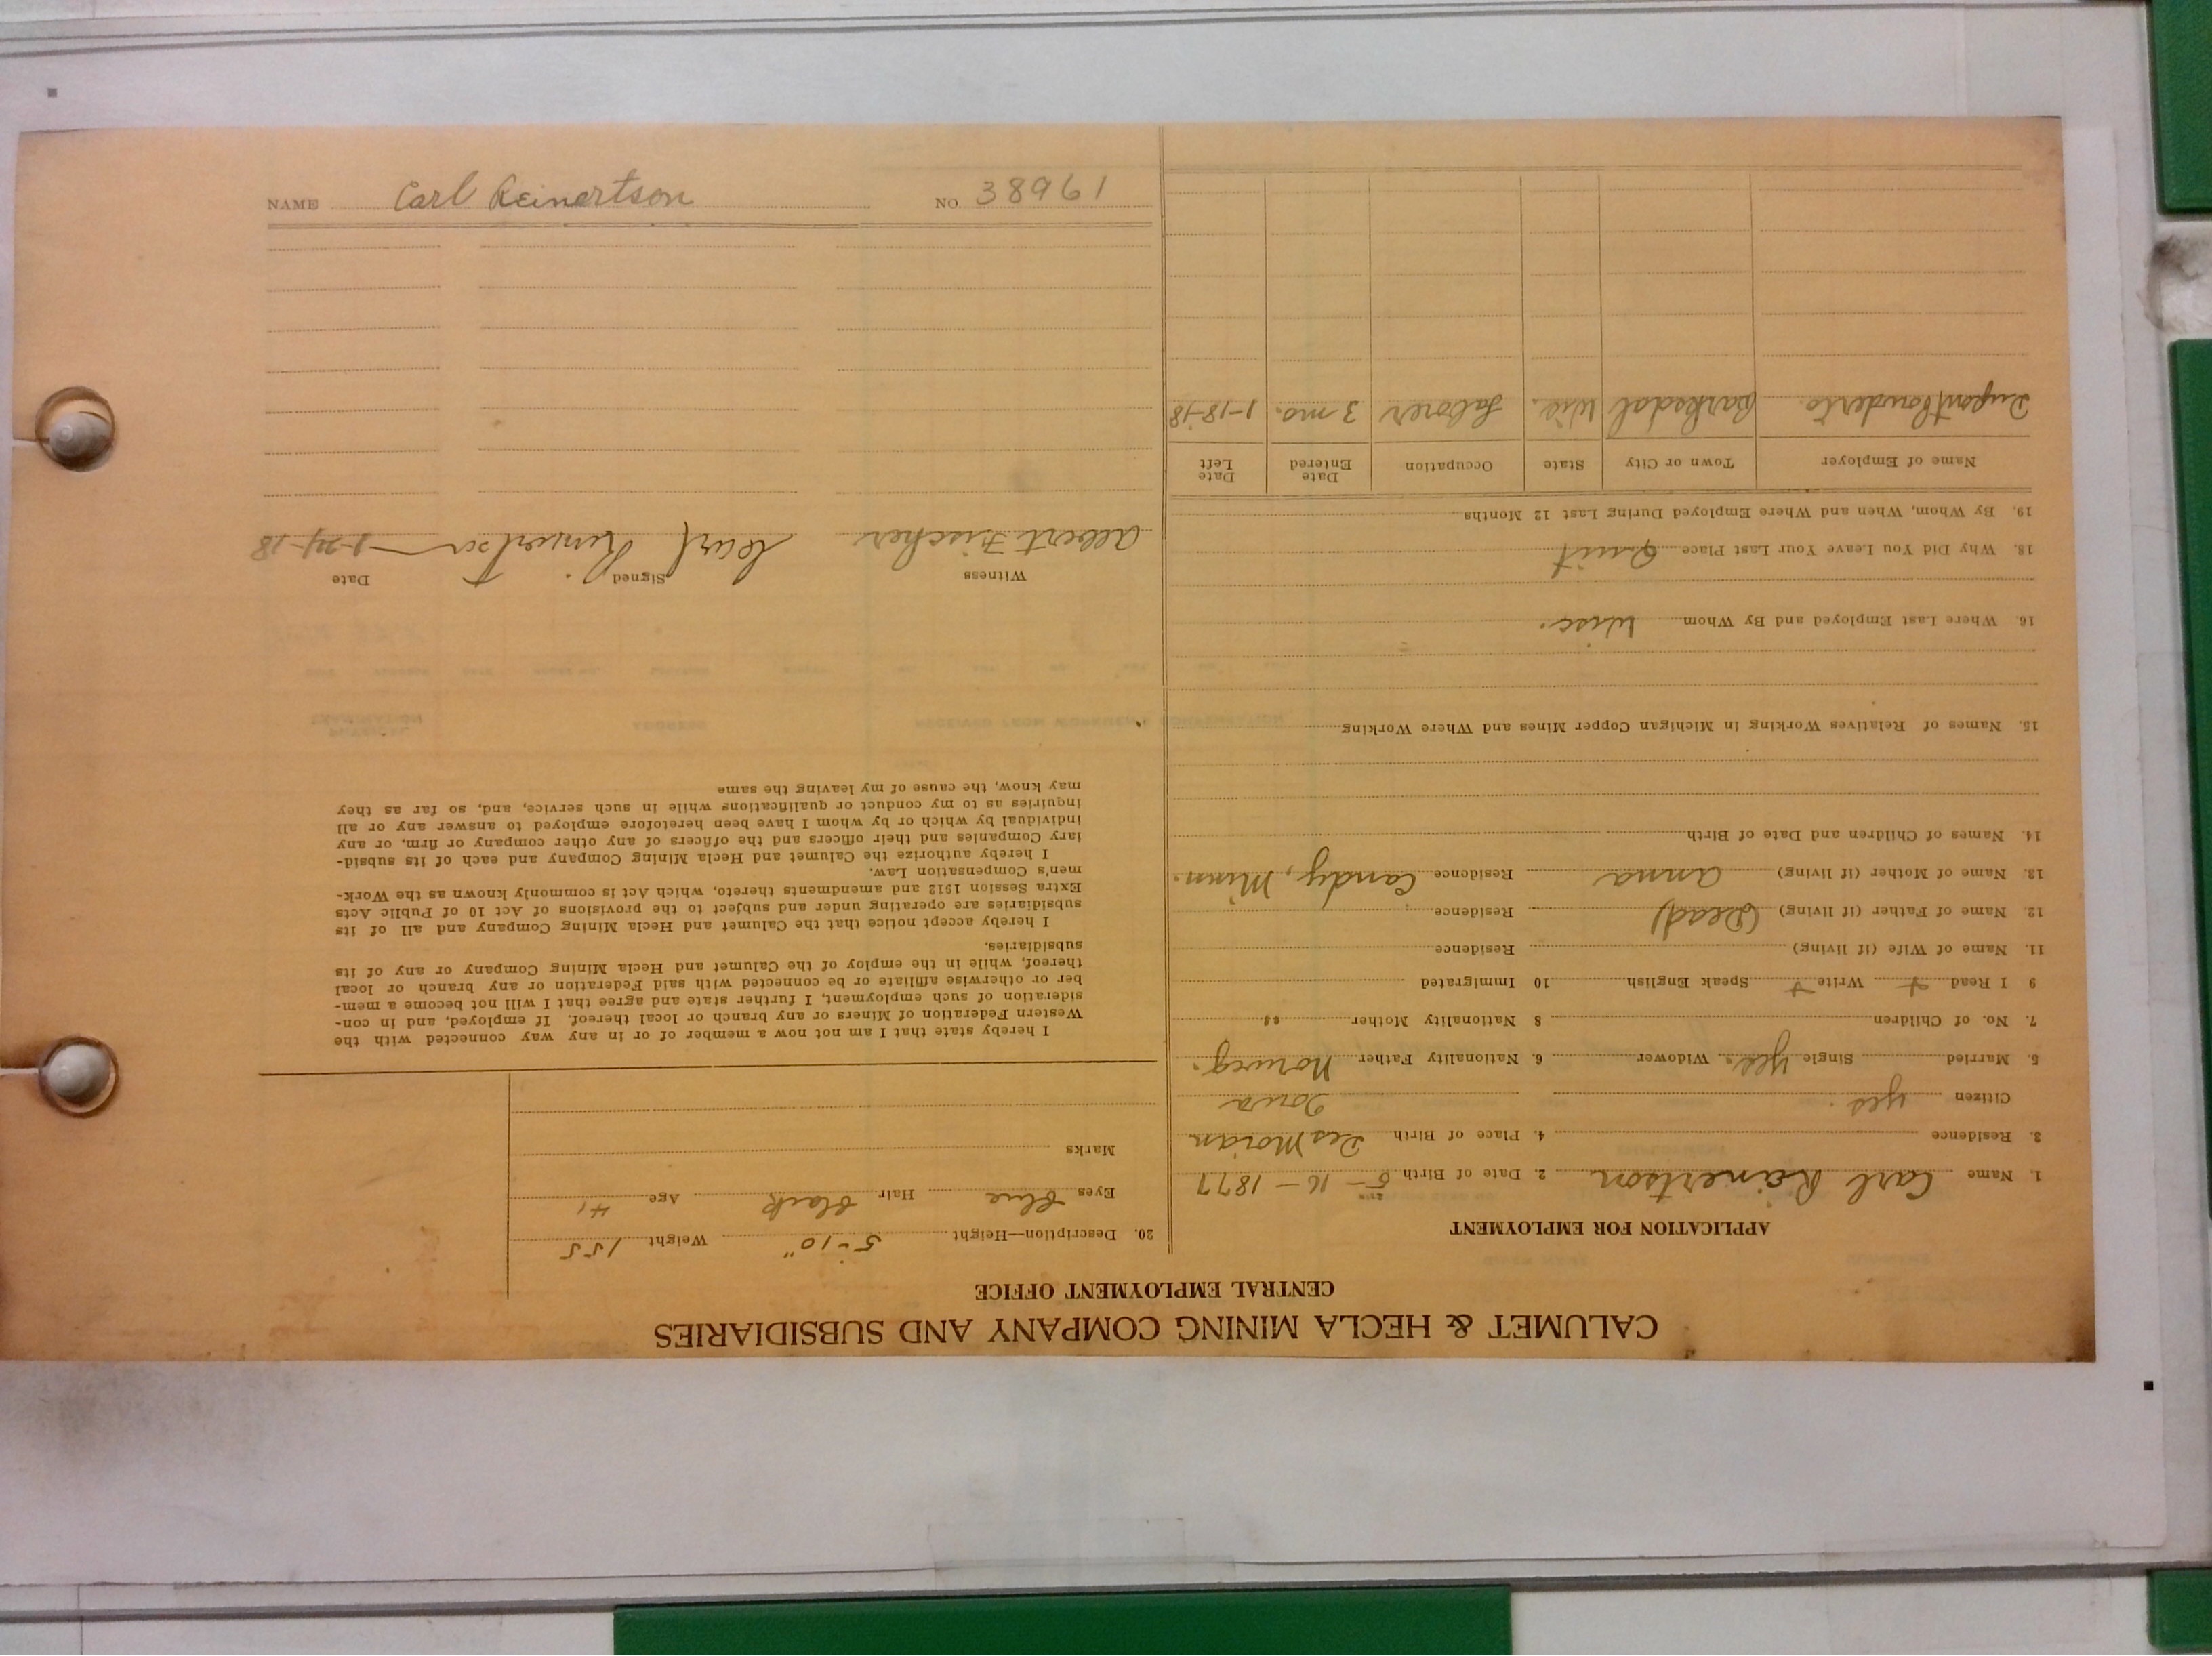 CALUMET & HECLA MINING COMPANY AND SUBSIDIARIES
CENTRAL EMPLOYMENT OFFICE
APPLICATION FOR EMPLOYMENT
1. Name Carl Reinertson 2. Date of Birth 5 - 16 - 1877
3. Residence 4. Place of Birth Des Moian
Citizen yes. Iowa
5. Married Single yes. Widower 6. Nationality Father Norweg.
7. No. of Children 8 Nationality Mother "
9 I Read + Write + Speak English 10 Immigrated
11. Name of Wife (if living) Residence
12. Name of Father (if living) (Dead) Residence
13. Name of Mother (if living) Anna Residence Candy, Minn.
14. Names of Children and Date of Birth
15. Names of Relatives Working in Michigan Copper Mines and Where Working
16. Where Last Employed and By Whom Wisc.
18. Why Did You Leave Your Last Place Quit
19. By Whom, When and Where Employed During Last 12 Months
Name of Employer Town or City State Occupation Date Entered Date Left
Dupont Barksdal Wis. Laborer 3 mo. 1-18-18
20. Description—Height 5-10" Weight 155
Eyes Blue Hair Black Age 41
Marks
I hereby state that I am not now a member of or in any way connected with the
Western Federation of Miners or any branch or local thereof. If employed, and in con-
sideration of such employment, I further state and agree that I will not become a mem-
ber or otherwise affiliate or be connected with said Federation or any branch or local
thereof, while in the employ of the Calumet and Hecla Mining Company or any of its
subsidiaries.
I hereby accept notice that the Calumet and Hecla Mining Company and all of its
subsidiaries are operating under and subject to the provisions of Act 10 of Public Acts
Extra Session 1912 and amendments thereto, which Act is commonly known as the Work-
men's Compensation Law.
I hereby authorize the Calumet and Hecla Mining Company and each of its subsid-
iary Companies and their officers and the officers of any other company or firm, or any
individual by which or by whom I have been heretofore employed to answer any or all
inquiries as to my conduct or qualifications while in such service, and, so far as they
may know, the cause of my leaving the same
Witness Signed Date
Albert Fischer Carl Reinertson 1-24-18
NAME Carl Reinertson NO. 38961